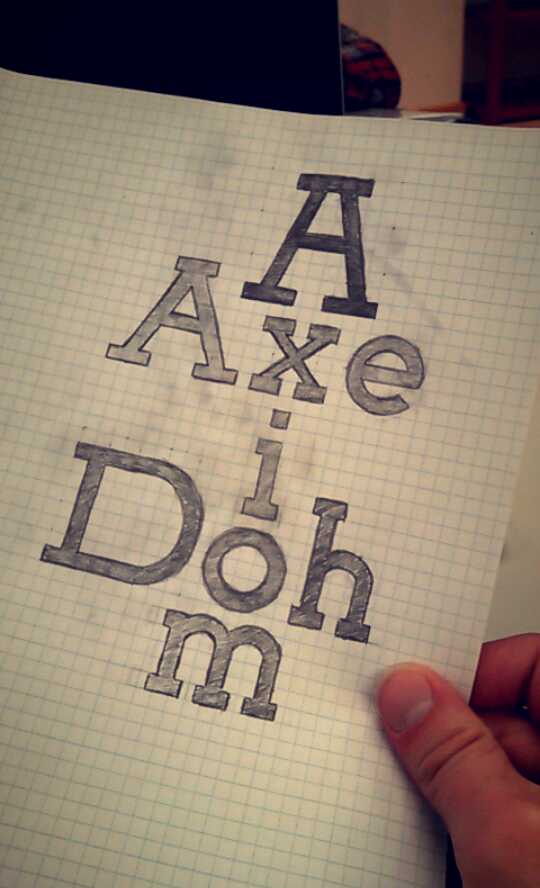 A
Axe
i
Doh
m